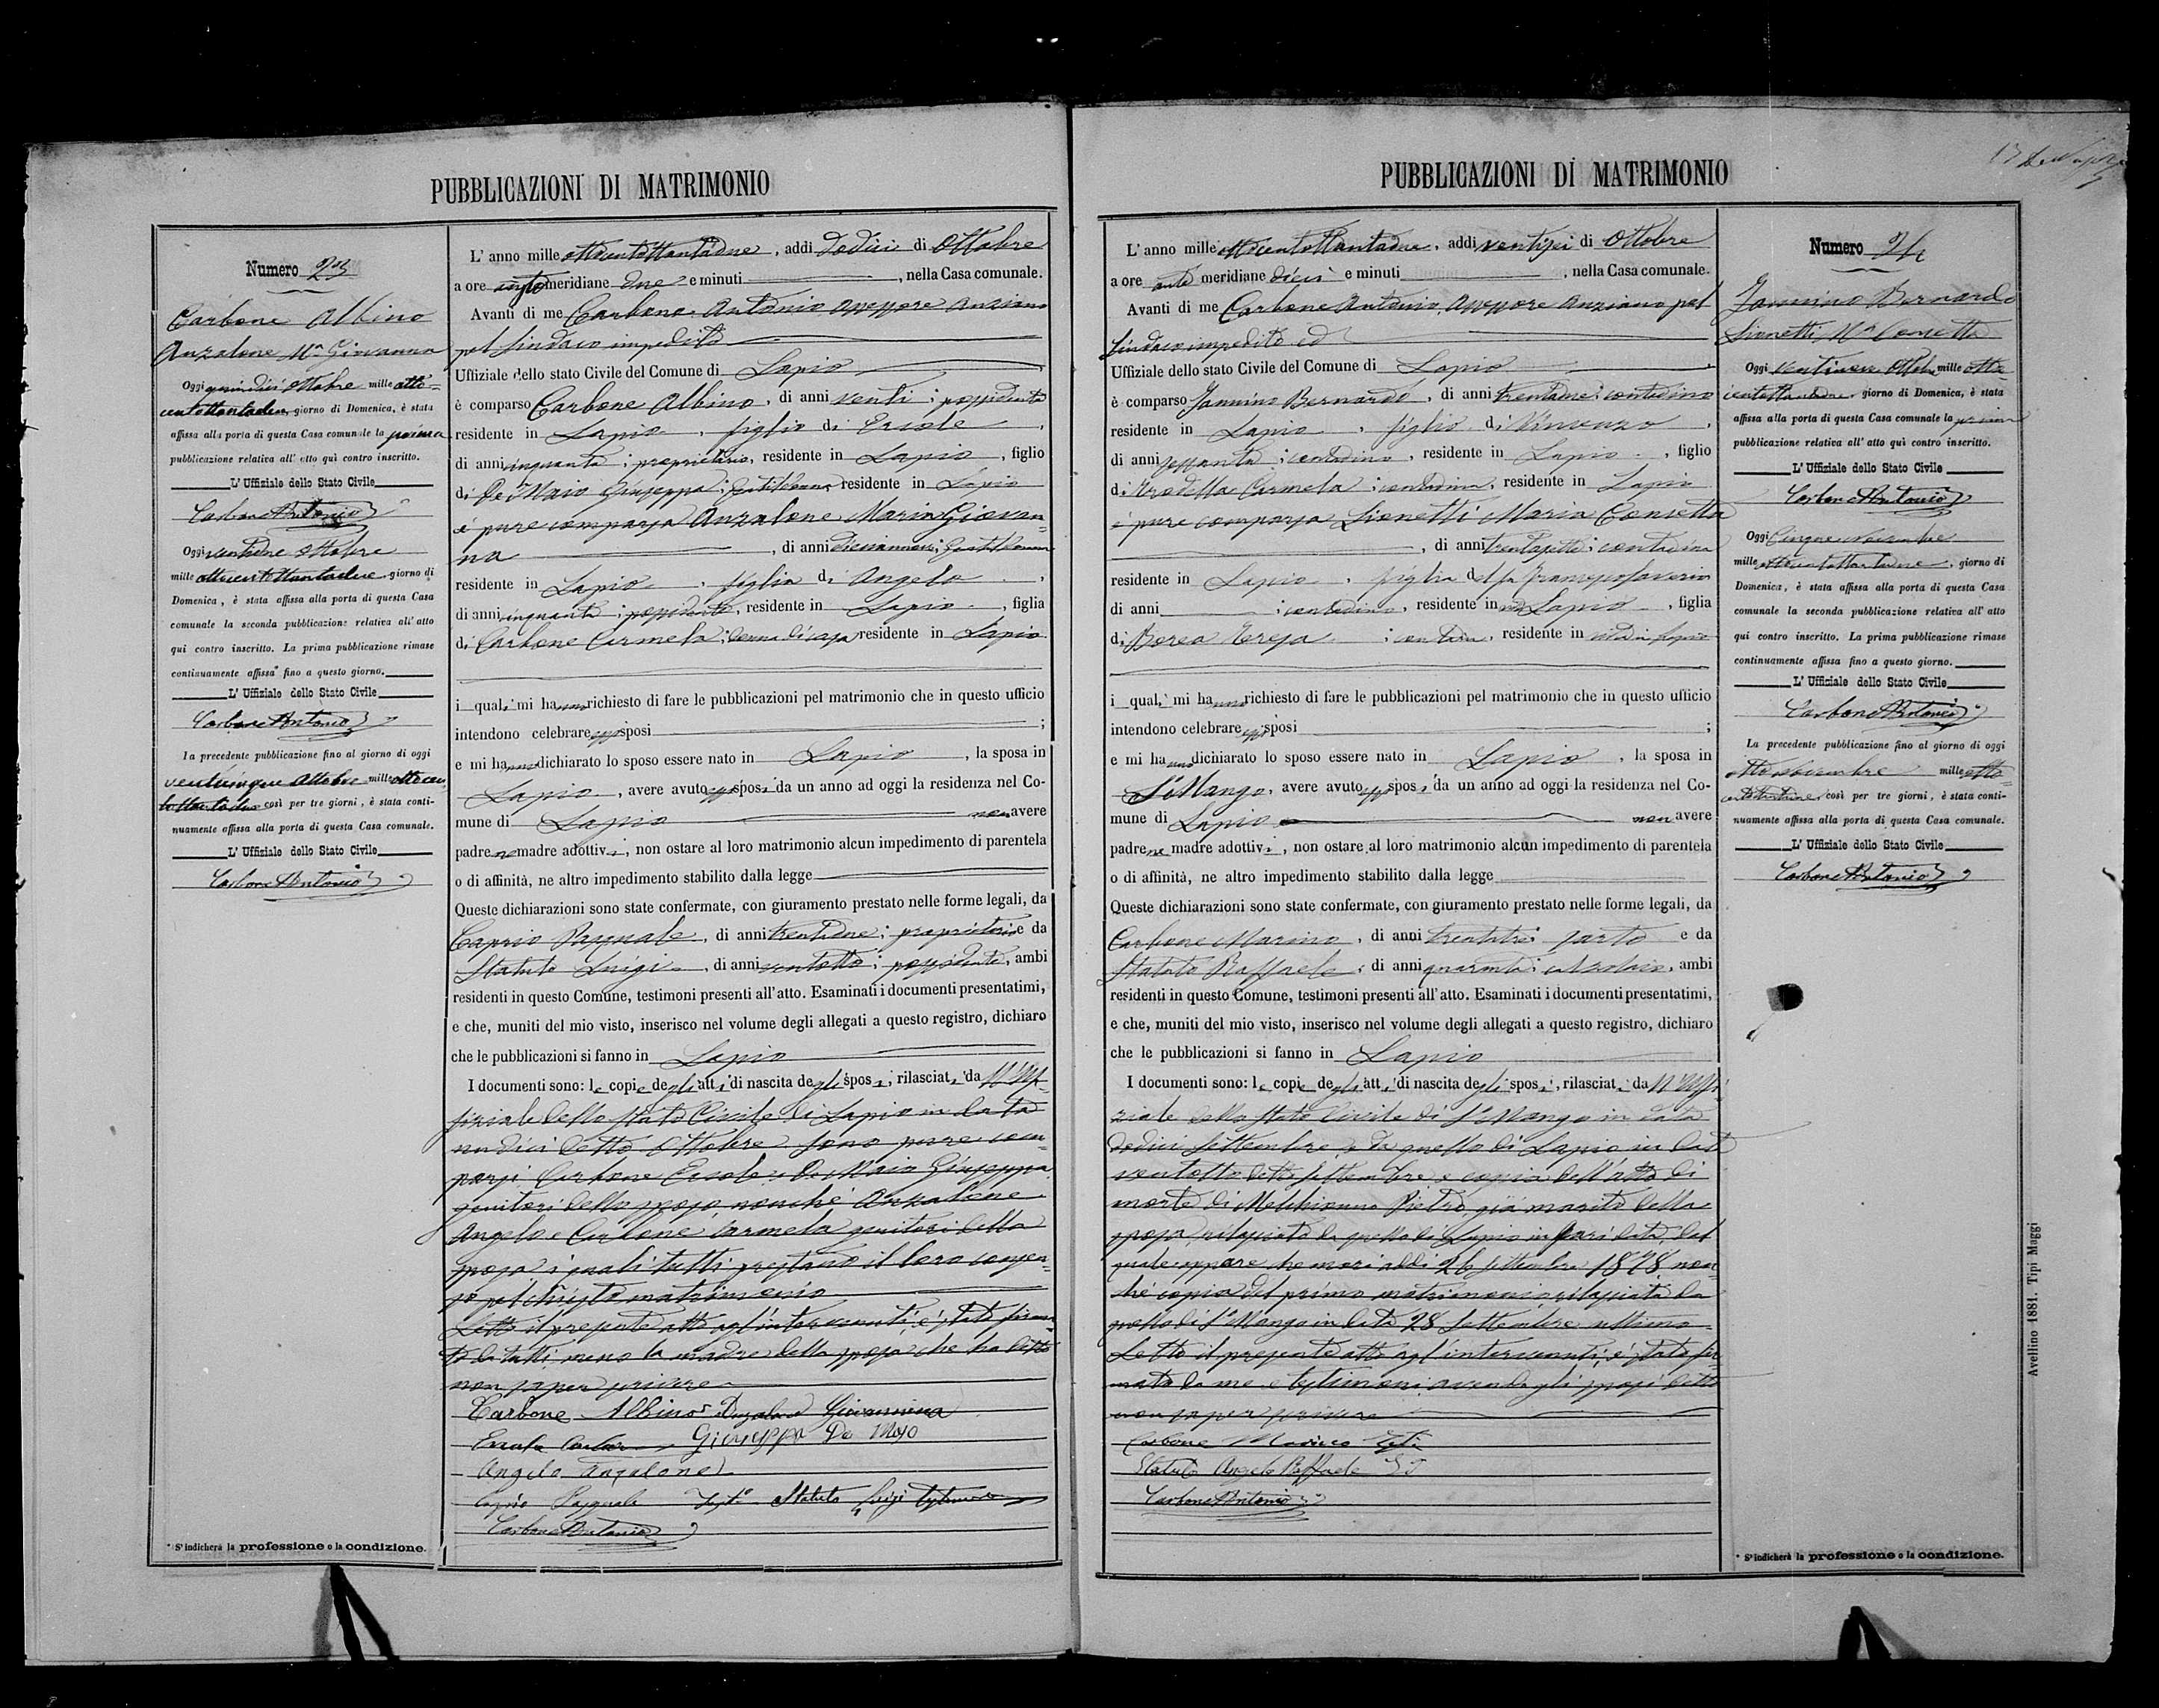 PUBBLICAZIONI DI MATRIMONIO
Numero 23
Carbone Albino
Anzalone Ma Giovanna
Oggi quindici Ottobre mille otto=
centottantadue, giorno di Domenica, è stata
affissa alla porta di questa Casa comunale la prima
pubblicazione relativa all' atto qui contro inscritto.
L' Uffiziale dello Stato Civile
Carbone Antonio
Oggi ventidue Ottobre
mille ottocentottantadue, giorno di
Domenica, è stata affissa alla porta di questa Casa
comunale la seconda pubblicazione relativa all' atto
qui contro inscritto. La prima pubblicazione rimase
continuamente affissa fino a questo giorno.
L' Uffiziale dello Stato Civile
Carbone Antonio
La precedente pubblicazione fino al giorno di oggi
venticinque Ottobre mille ottocen
tottantadue così per tre giorni, è stata conti-
nuamente affissa alla porta di questa Casa comunale.
L' Uffiziale dello Stato Civile
Carbone Antonio
* S'indicherà la professione o la condizione.
L' anno mille ottocentottantadue, addì Dodici di Ottobre
a ore meridiane due e minuti , nella Casa comunale.
Avanti di me Carbone Antonio Assessore Anziano
pel Sindaco impedito
Uffiziale dello stato Civile del Comune di Lapio
è comparso Carbone Albino, di anni venti; possidente
residente in Lapio, figlio di Ercole,
di anni cinquanta; proprietario, residente in Lapio, figlio
di De Maio Giuseppa; Gentildonna residente in Lapio
è pure comparsa Anzalone Maria Giovan=
na , di anni diciannove; Gentildonna
residente in Lapio, figlia di Angelo,
di anni cinquanta; possidente, residente in Lapio, figlia
di Carbone Carmela; donna di casa residente in Lapio
i quali mi hanno richiesto di fare le pubblicazioni pel matrimonio che in questo ufficio
intendono celebrare essi sposi ;
e mi hanno dichiarato lo sposo essere nato in Lapio, la sposa in
Lapio, avere avuto essi sposi da un anno ad oggi la residenza nel Co-
mune di Lapio non avere
padre ne madre adottivi, non ostare al loro matrimonio alcun impedimento di parentela
o di affinità, ne altro impedimento stabilito dalla legge
Queste dichiarazioni sono state confermate, con giuramento prestato nelle forme legali, da
Caprio Pasquale, di anni trentadue; proprietario e da
Statuto Luigi, di anni ventotto; possidente, ambi
residenti in questo Comune, testimoni presenti all'atto. Esaminati i documenti presentatimi,
e che, muniti del mio visto, inserisco nel volume degli allegati a questo registro, dichiaro
che le pubblicazioni si fanno in Lapio
I documenti sono: le copie degli atti di nascita degli sposi, rilasciati da ll'Uf=
fiziale dello Stato Civile di Lapio in data
undici detto Ottobre. Sono pure com=
parsi Carbone Ercole e De Maio Giuseppa
genitori dello sposo, nonchè Anzalone
Angelo e Carbone Carmela genitori della
sposa i quali tutti prestano il loro consen=
so pel chiesto matrimonio
Letto il presente atto agl'intervenuti, è stato firma=
to da tutti, meno la madre della sposa che ha detto
non saper scrivere
Carbone Albino Anzalone Giovannina
Ercole Carbone Giuseppa De Majo
Angelo Anzalone
Caprio Pasquale Testo Statuto Luigi testimone
Carbone Antonio
PUBBLICAZIONI DI MATRIMONIO
L' anno mille ottocentottantadue, addì ventisei di Ottobre
a ore anti meridiane dieci e minuti , nella Casa comunale.
Avanti di me Carbone Antonio, Assessore Anziano pel
Sindaco impedito ed
Uffiziale dello stato Civile del Comune di Lapio
è comparso Jannino Bernardo, di anni trentadue; contadino
residente in Lapio, figlio di Vincenzo,
di anni sessanta; contadino, residente in Lapio, figlio
di Carmela; contadina, residente in Lapio
è pure comparsa Lionetti Maria Concetta
, di anni trentasette; contadina
residente in Lapio, figlia del fu Francescosaverio
di anni ; contadino, residente in Lapio, figlia
di Borea Teresa ; contadina, residente in Lapio
i quali mi hanno richiesto di fare le pubblicazioni pel matrimonio che in questo ufficio
intendono celebrare essi sposi ;
e mi hanno dichiarato lo sposo essere nato in Lapio, la sposa in
Se Mango, avere avuto essi sposi da un anno ad oggi la residenza nel Co-
mune di Lapio non avere
padre ne madre adottivi, non ostare al loro matrimonio alcun impedimento di parentela
o di affinità, ne altro impedimento stabilito dalla legge
Queste dichiarazioni sono state confermate, con giuramento prestato nelle forme legali, da
Carbone Marino, di anni trentatre; sarto e da
Statuto Raffaele; di anni quaranta; calzolaio, ambi
residenti in questo Comune, testimoni presenti all'atto. Esaminati i documenti presentatimi,
e che, muniti del mio visto, inserisco nel volume degli allegati a questo registro, dichiaro
che le pubblicazioni si fanno in Lapio
I documenti sono: le copie degli atti di nascita degli sposi, rilasciati da ll'Uffi
ziale dello Stato Civile di Se Mango in data
dodici Settembre, e da quello di Lapio in data
ventotto detto Settembre, e copia dell'atto di
morte di Melchionna Pietro, già marito della
sposa, rilasciata da quello di Lapio in pari data, dal
quale appare che morì addì 26 Settembre 1878 non=
chè copia del primo matrimonio rilasciata da
quello di Se Mango in data 28 Settembre ultimo.
Letto il presente atto agl'intervenuti, è stato fir=
mato da me e testimoni avendo gli sposi detto
non saper scrivere
Carbone Marino
Statuto Angelo Raffaele
Carbone Antonio
Numero 24
Jannino Bernardo
Lionetti Ma Concetta
Oggi ventinove Ottobre mille otto
centottantadue, giorno di Domenica, è stata
affissa alla porta di questa Casa comunale la prima
pubblicazione relativa all' atto quì contro inscritto.
L' Uffiziale dello Stato Civile
Carbone Antonio
Oggi Cinque Novembre
mille ottocentottantadue, giorno di
Domenica, è stata affissa alla porta di questa Casa
comunale la seconda pubblicazione relativa all' atto
qui contro inscritto. La prima pubblicazione rimase
continuamente affissa fino a questo giorno.
L' Uffiziale dello Stato Civile
Carbone Antonio
La precedente pubblicazione fino al giorno di oggi
otto Novembre mille otto
centottantadue, così per tre giorni, è stata conti-
nuamente affissa alla porta di questa Casa comunale.
L' Uffiziale dello Stato Civile
Carbone Antonio
* S'indicherà la professione o la condizione.
Avellino 1881. Tipi Maggi